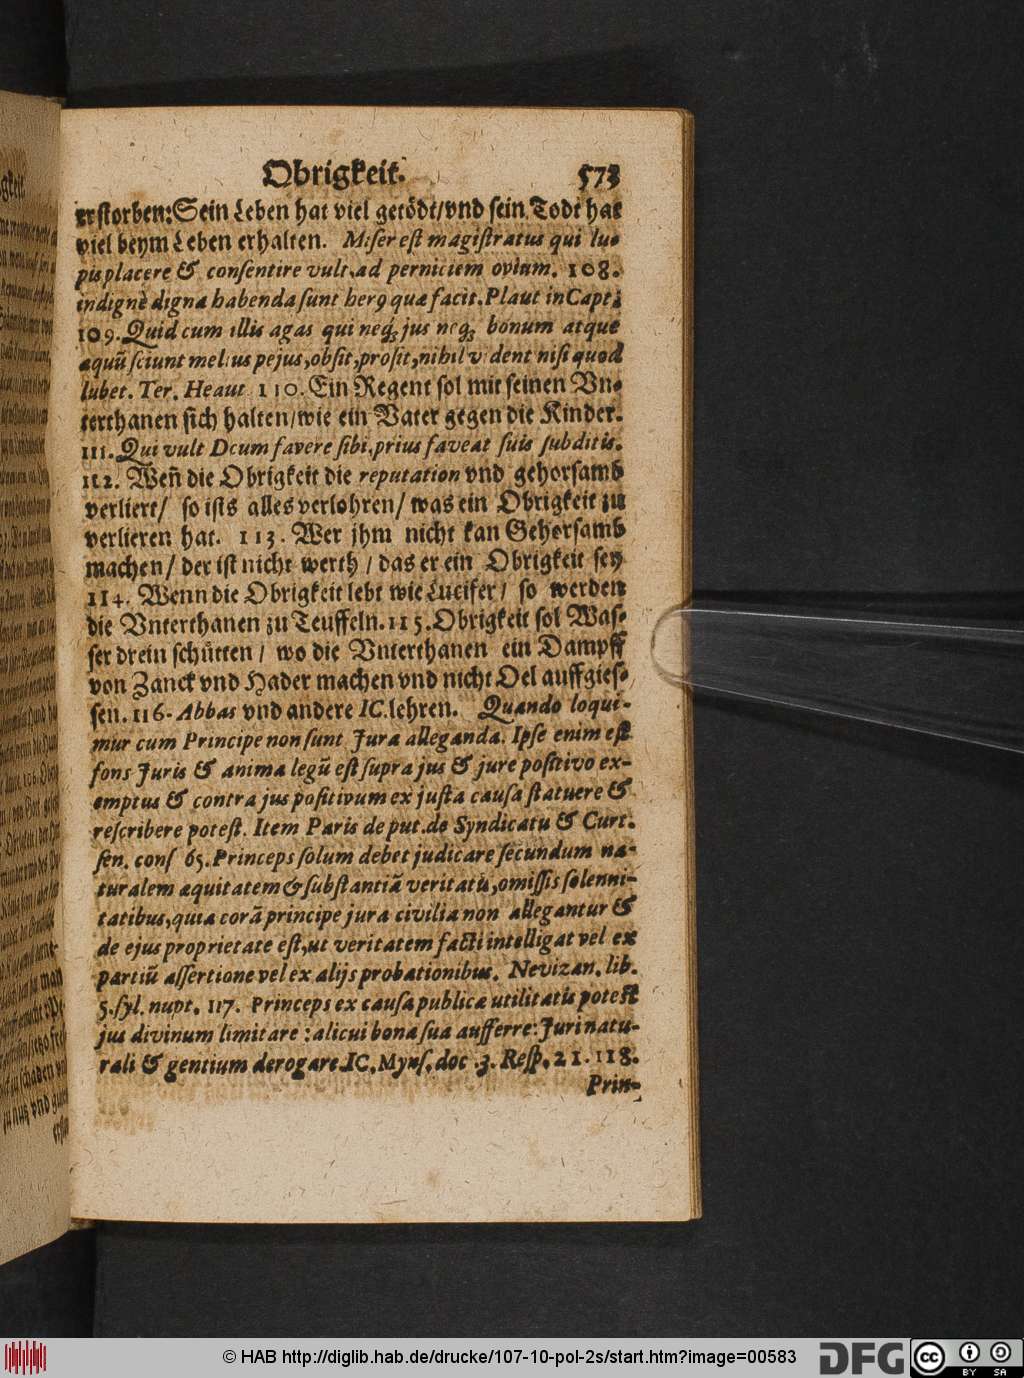 Obrigkeit. 573
erstorben: Sein Leben hat viel getödt/ vnd sein Todt hat
viel beym Leben erhalten. Miser est magistratus qui lu-
pis placere & consentire vult, ad perniciem ovium. 108.
indignè digna habenda sunt herꝰ quæ facit. Plaut in Capt:
109. Quid cum illis agas qui neqꝫ jus neqꝫ bonum atque
æquũ sciunt melius pejus, obsit, prosit, nihil vident nisi quod
lubet. Ter. Heaut 110. Ein Regent sol mit seinen Vn-
terthanen sich halten/ wie ein Vater gegen die Kinder.
111. Qui vult Deum favere sibi, prius faveat suis subditis.
112. Weñ die Obrigkeit die reputation vnd gehorsamb
verliert/ so ists alles verlohren/ was ein Obrigkeit zu
verlieren hat. 113. Wer jhm nicht kan Gehorsamb
machen/ der ist nicht werth/ das er ein Obrigkeit sey
114. Wenn die Obrigkeit lebt wie Lucifer/ so werden
die Vnterthanen zu Teuffeln. 115. Obrigkeit sol Was-
ser drein schütten/ wo die Vnterthanen ein Dampff
von Zanck vnd Hader machen vnd nicht Oel auffgies-
sen. 116. Abbas vnd andere IC. lehren. Quando loqui-
mur cum Principe non sunt Jura alleganda. Ipse enim est
fons Juris & anima legũ est supra jus & jure positivo ex-
emptus & contra jus positivum ex justa causa statuere &
rescribere potest. Item Paris de put. de Syndicatu & Curt.
sen. cons 65. Princeps solum debet judicare secundum na-
turalem æquitatem & substantiã veritatis, omissis solenni-
tatibus, quia corã principe jura civilia non allegantur &
de ejus proprietate est, ut veritatem facti intelligat vel ex
partiũ assertione vel ex alijs probationibus. Nevizan. lib.
5. syl. nupt. 117. Princeps ex causa publicæ utilitatis potest
jus divinum limitare: alicui bona sua aufferre: Juri natu-
rali & gentium derogare. IC. Myns. doc .3. Resp. 21. 118.
Prin-
© HAB http://diglib.hab.de/drucke/107-10-pol-2s/start.htm?image=00583
DFG
cc BY SA